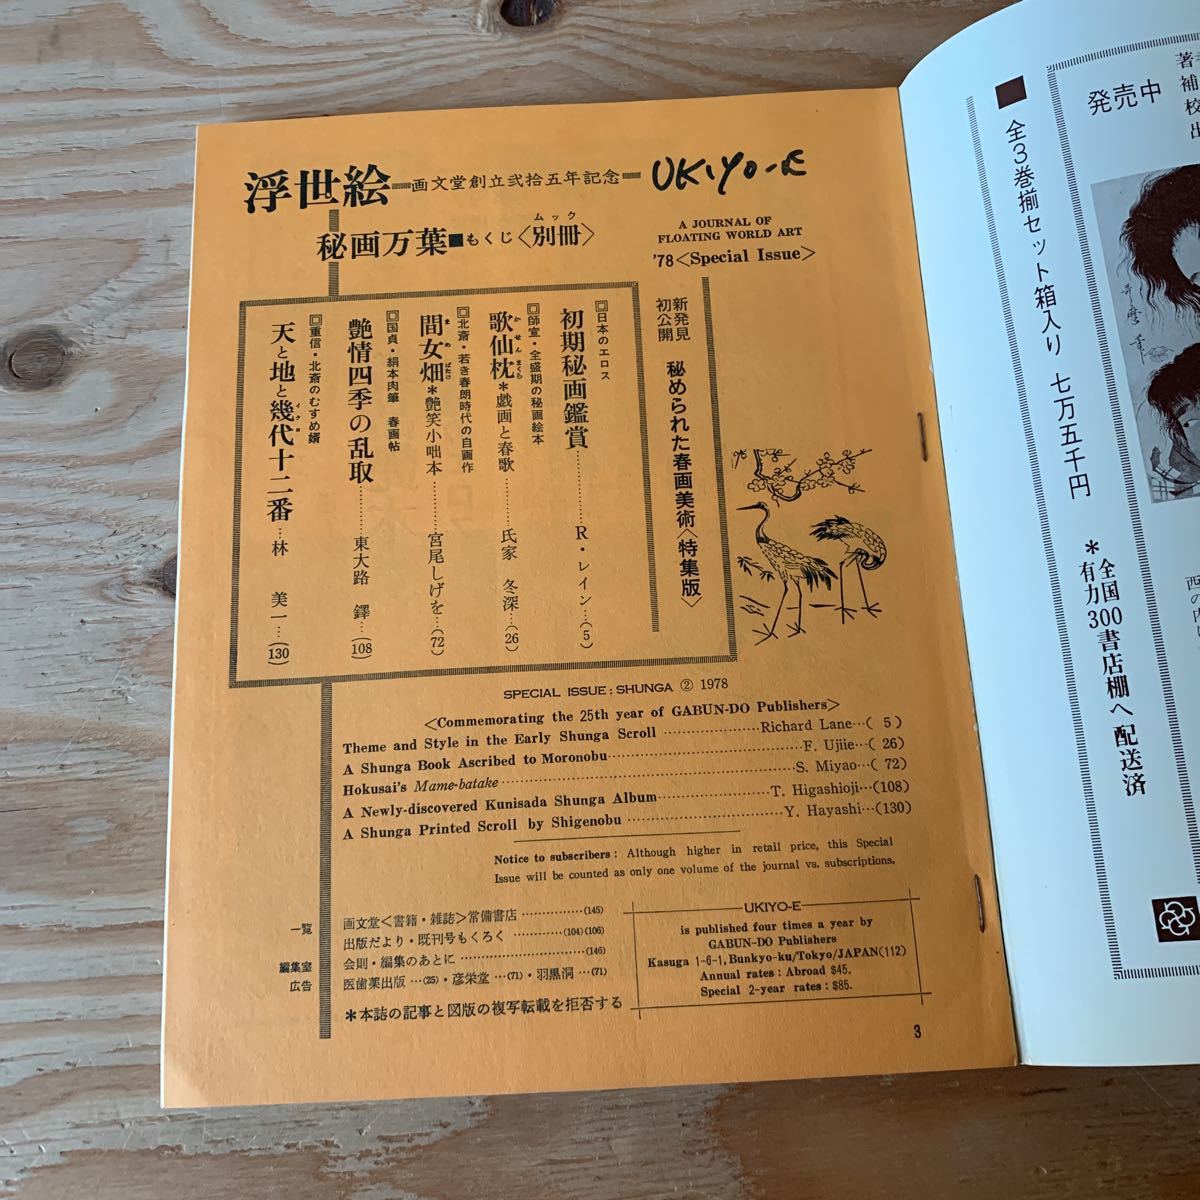 浮世絵
画文堂創立弐拾五年記念
UKIYO-E
秘画万葉■もくじ〈別冊〉
ムック
A JOURNAL OF
FLOATING WORLD ART
'78<Special Issue>
新発見
初公開
秘められた春画美術〈特集版〉
日本のエロス
初期秘画鑑賞………R・レイン…(5)
師宣・全盛期の秘画絵本
歌仙枕*戯画と春歌………氏家 冬深…(26)
かせんまくら
北斎・若き春朗時代の自画作
間女畑*艶笑小咄本………宮尾しげを…(72)
まめばたけ
国貞・絹本肉筆 春画帖
艶情四季の乱取………東大路 鐸…(108)
重信・北斎のむすめ婿
天と地と幾代十二番…林 美一…(130)
イクヨ
SPECIAL ISSUE: SHUNGA ② 1978
<Commemorating the 25th year of GABUN-DO Publishers>
Theme and Style in the Early Shunga Scroll ………Richard Lane…( 5 )
A Shunga Book Ascribed to Moronobu………F. Ujiie…( 26)
Hokusai's Mame-batake………S. Miyao…( 72)
A Newly-discovered Kunisada Shunga Album………T. Higashioji…(108)
A Shunga Printed Scroll by Shigenobu………Y. Hayashi…(130)
Notice to subscribers: Although higher in retail price, this Special
Issue will be counted as only one volume of the journal vs. subscriptions.
一覧
画文堂<書籍・雑誌>常備書店………(145)
出版だより・既刊号もくろく………(104)(106)
編集室
会則・編集のあとに………(146)
広告
医歯薬出版…(25)・彦栄堂…(71)・羽黒洞…(71)
*本誌の記事と図版の複写転載を拒否する
UKIYO-E
is published four times a year by
GABUN-DO Publishers
Kasuga 1-6-1, Bunkyo-ku/Tokyo/JAPAN(112)
Annual rates: Abroad $45.
Special 2-year rates: $85.
3
■全3巻揃セット箱入り 七万五千円
*全国
有力300書店棚へ配送済
発売中
著
補
校
出